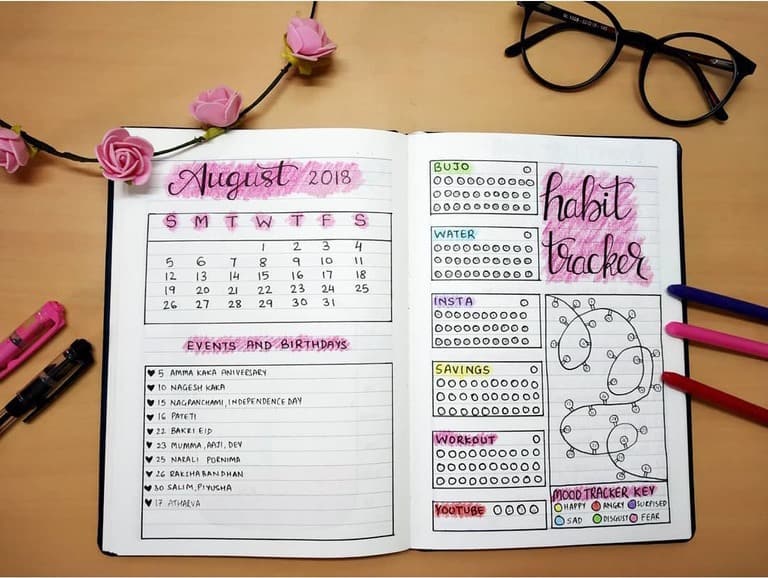 August 2018
S M T W T F S
1 2 3 4
5 6 7 8 9 10 11
12 13 14 15 16 17 18
19 20 21 22 23 24 25
26 27 28 29 30 31
EVENTS AND BIRTHDAYS
5 AMMA KAKA ANIVERSARY
10 NAGESH KAKA
15 NAGPANCHAMI, INDEPENDENCE DAY
16 PATETI
22 BAKRI EID
23 MUMMA, AAJI, DEV
25 NARALI PORNIMA
26 RAKSHABANDHAN
30 SALIM, PIYUSHA
17 ATHARVA
habit
tracker
BUJO
WATER
INSTA
SAVINGS
WORKOUT
YOUTUBE
MOOD TRACKER KEY
HAPPY ANGRY SURPISED
SAD DISGUST FEAR